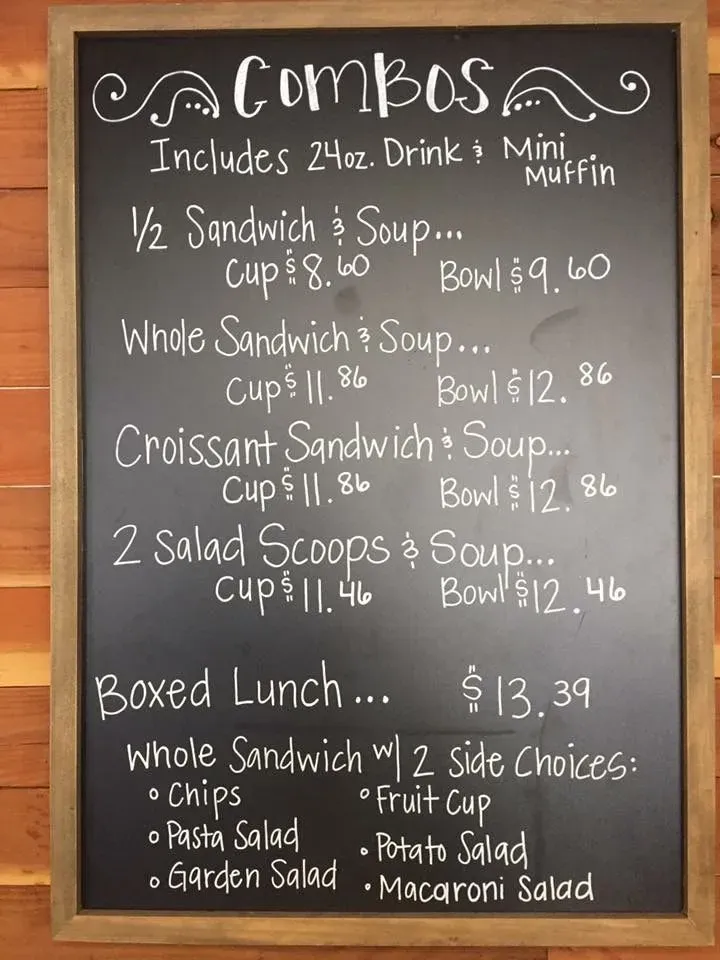 COMBOS
Includes 24oz. Drink & Mini Muffin
1/2 Sandwich & Soup...
Cup $8.60 Bowl $9.60
Whole Sandwich & Soup...
Cup $11.86 Bowl $12.86
Croissant Sandwich & Soup...
Cup $11.86 Bowl $12.86
2 Salad Scoops & Soup...
Cup $11.46 Bowl $12.46
Boxed Lunch... $13.39
Whole Sandwich w/ 2 Side Choices:
◦ Chips ◦ Fruit Cup
◦ Pasta Salad ◦ Potato Salad
◦ Garden Salad ◦ Macaroni Salad